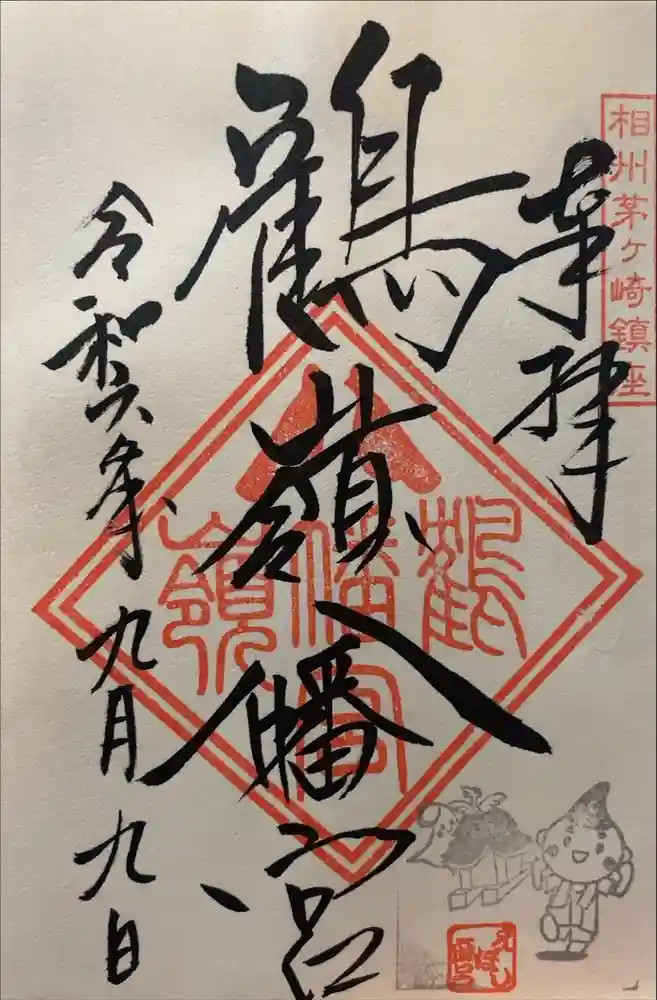 相州茅ヶ崎鎮座
奉拝
鶴嶺八幡宮
鶴
八幡宮
嶺
令和六年九月九日
えぼし